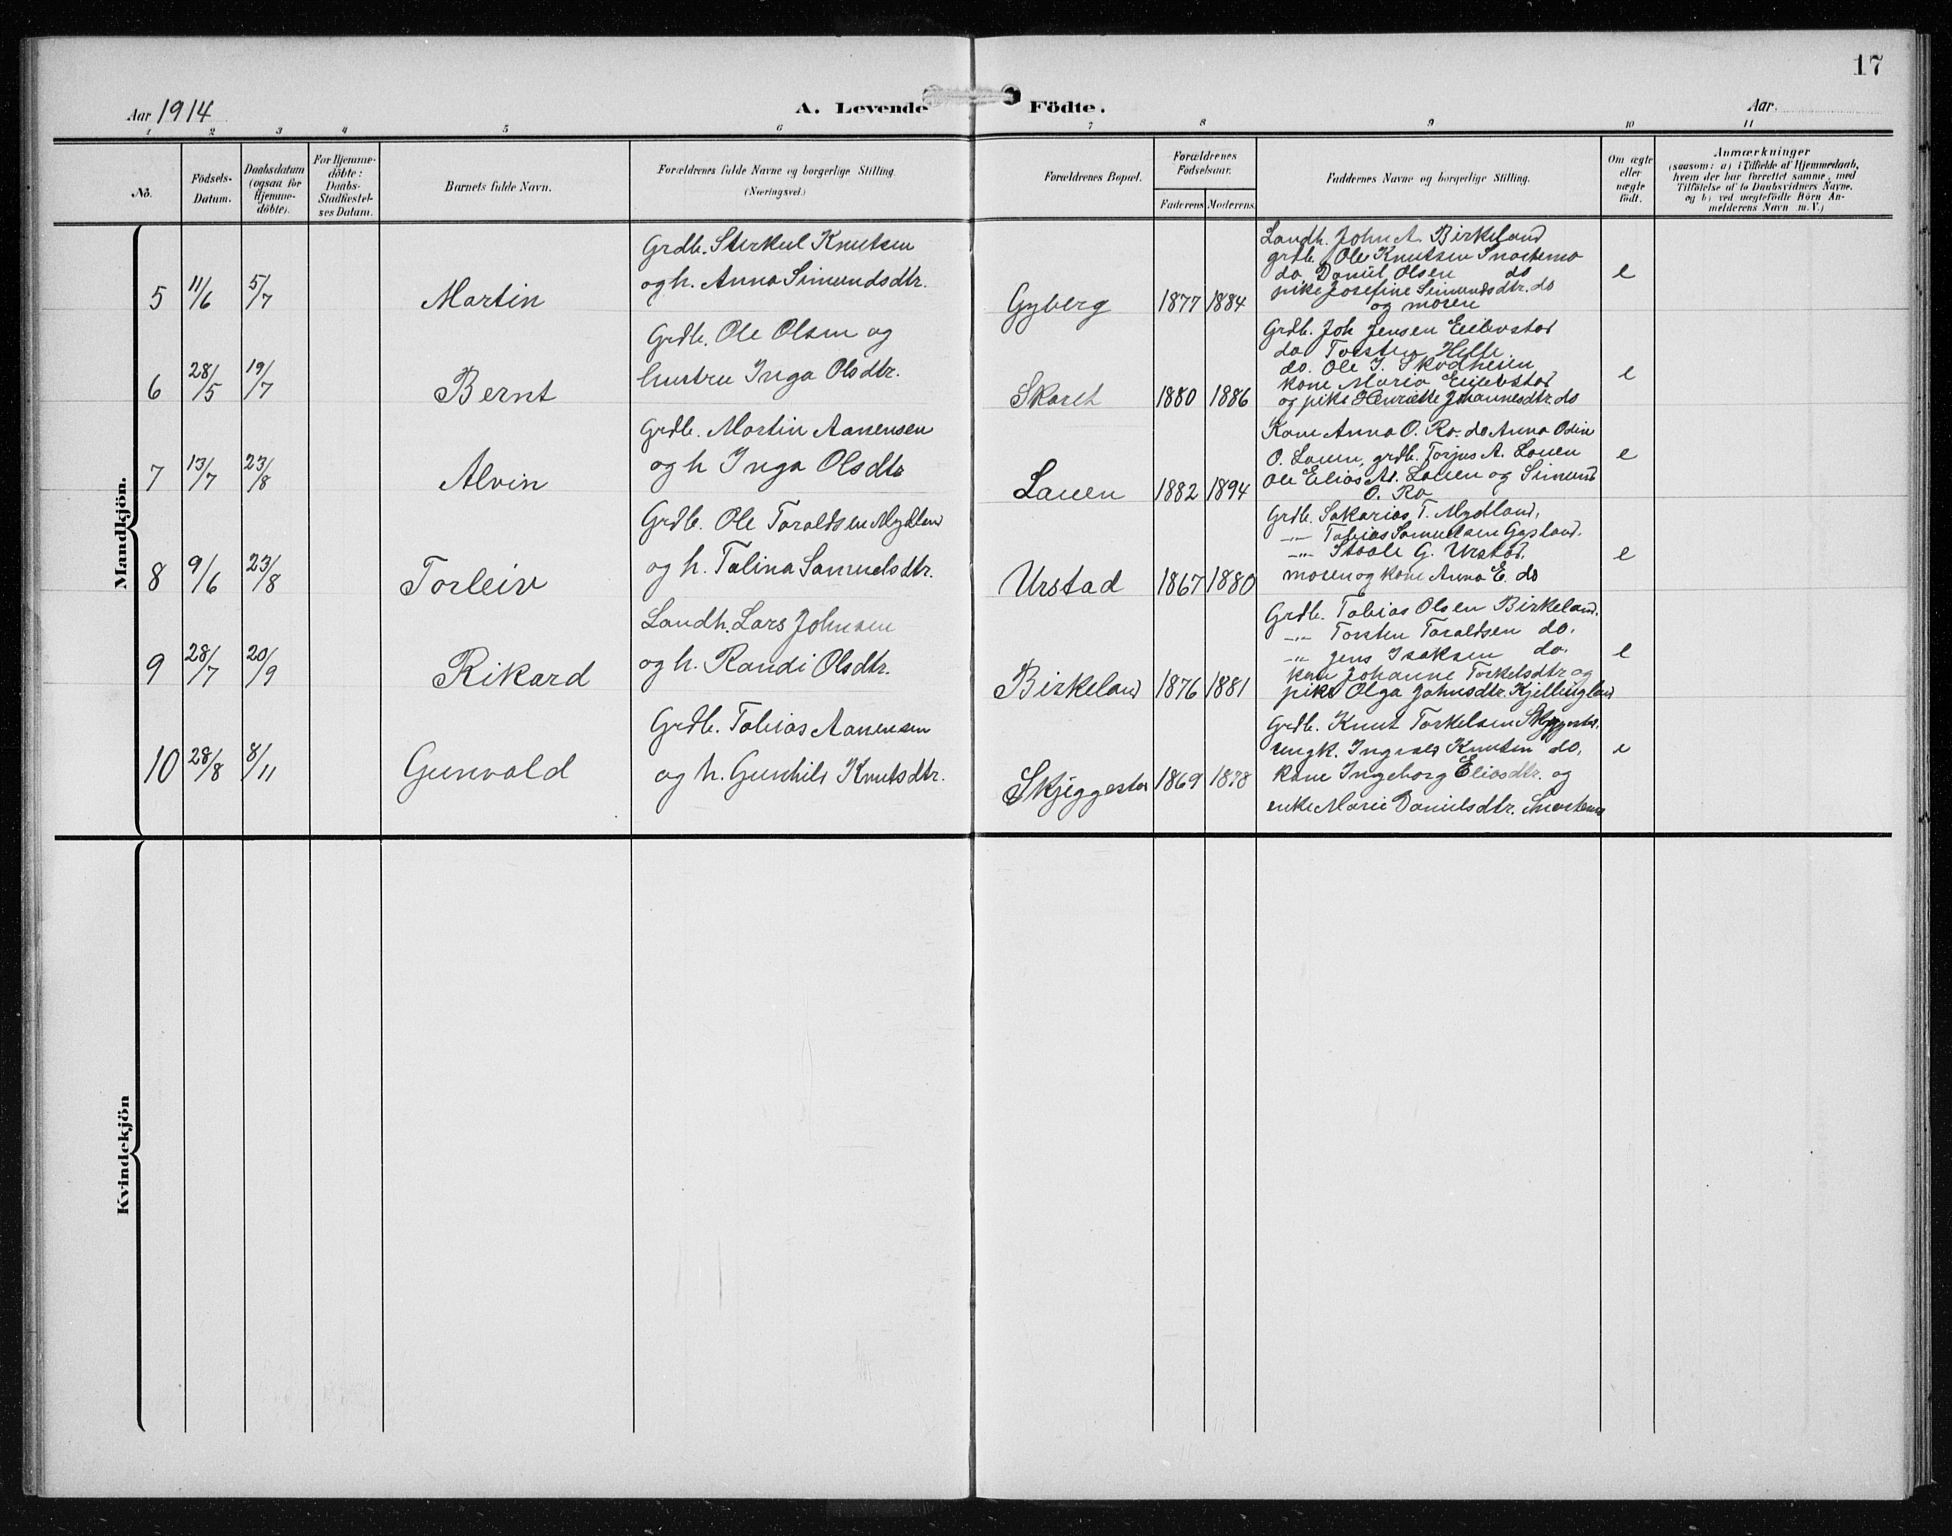 17
Aar 1914
A. Levende Födte.
Aar
1 2 3 4 5 6 7 8 9 10 11
No.
Födsels-Datum.
Daabsdatum (ogsaa for Hjemme-döbte).
For Hjemme-döbte: Daabs-Stadfæstel-ses Datum.
Barnets fulde Navn.
Forældrenes fulde Navne og borgerlige Stilling.
(Næringsvei.)
Forældrenes Bopæl.
Forældrenes Födselsaar.
Faderens Moderens
Faddernes Navne og borgerlige Stilling.
Om ægte eller uægte födt.
Anmærkninger
(saasom: a) i Tilfælde af Hjemmedaab,
hvem der har forrettet samme, med
Tilföielse af to Daabsvidners Navne,
og b) ved uægtefödte Börn An-
melderens Navn m. V.)
Mandkjön.
5 11/6 5/7 Martin
Grdb. Sterkel Knutsen
og h. Anna Simundsdtr.
Gyberg 1877 1884
Landh. John A. Birkeland
grdb. Ole Knutsen Snartemo
do Daniel Olsen do
pike Josefine Simundsdtr. do
og moren
e
6 28/5 19/7 Bernt
Grdb. Ole Olsen og
hustru Inga Olsdtr.
Skaret 1880 1886
Grdb. Joh Jensen Eilevstad
do Torsten Helle
do. Ole J. Skodheien
kone Maria Eilevstad
og pike Henriette Johannesdtr. do
e
7 13/7 23/8 Alvin
Grdb. Martin Aanensen
og h Inga Olsdtr
Lauen 1882 1894
Kone Anna O. Ro. do Anna Odin
O. Lauen, grdb. Torjus A. Lauen
Ole Elias A. Lauen og Simund
O. Ro
e
8 9/6 23/8 Torleiv
Grdb. Ole Taraldsen Mydland
og h. Talina Samuelsdtr.
Urstad 1867 1880
Grdb. Sakarias T. Mydland,
-"- Tobias Samuelsen
-"- Staale G. Urstad,
moren og kone Anna E. do
e
9 28/7 20/9 Rikard
Landh. Lars Johnsen
og h. Randi Olsdtr.
Birkeland 1876 1881
Grdb. Tobias Olsen Birkeland.
-"- Torsten Taraldsen do.
-"- Jens Isaksen do.
kone Johanne Torkelsdtr og
pike Olga Johnsdtr. Kjellingland
e
10 28/8 8/11 Gunvald
Grdb. Tobias Aanensen
og h. Gunhild Knutsdtr.
Skjeggestad 1869 1878
Grdb. Knut Torkelsen Skjeggestad.
ungk. Ingvald Knutsen do,
kone Ingeborg Eliasdtr. og
enke Marie Danielsdtr. Snartemo
e
Kvindekjön